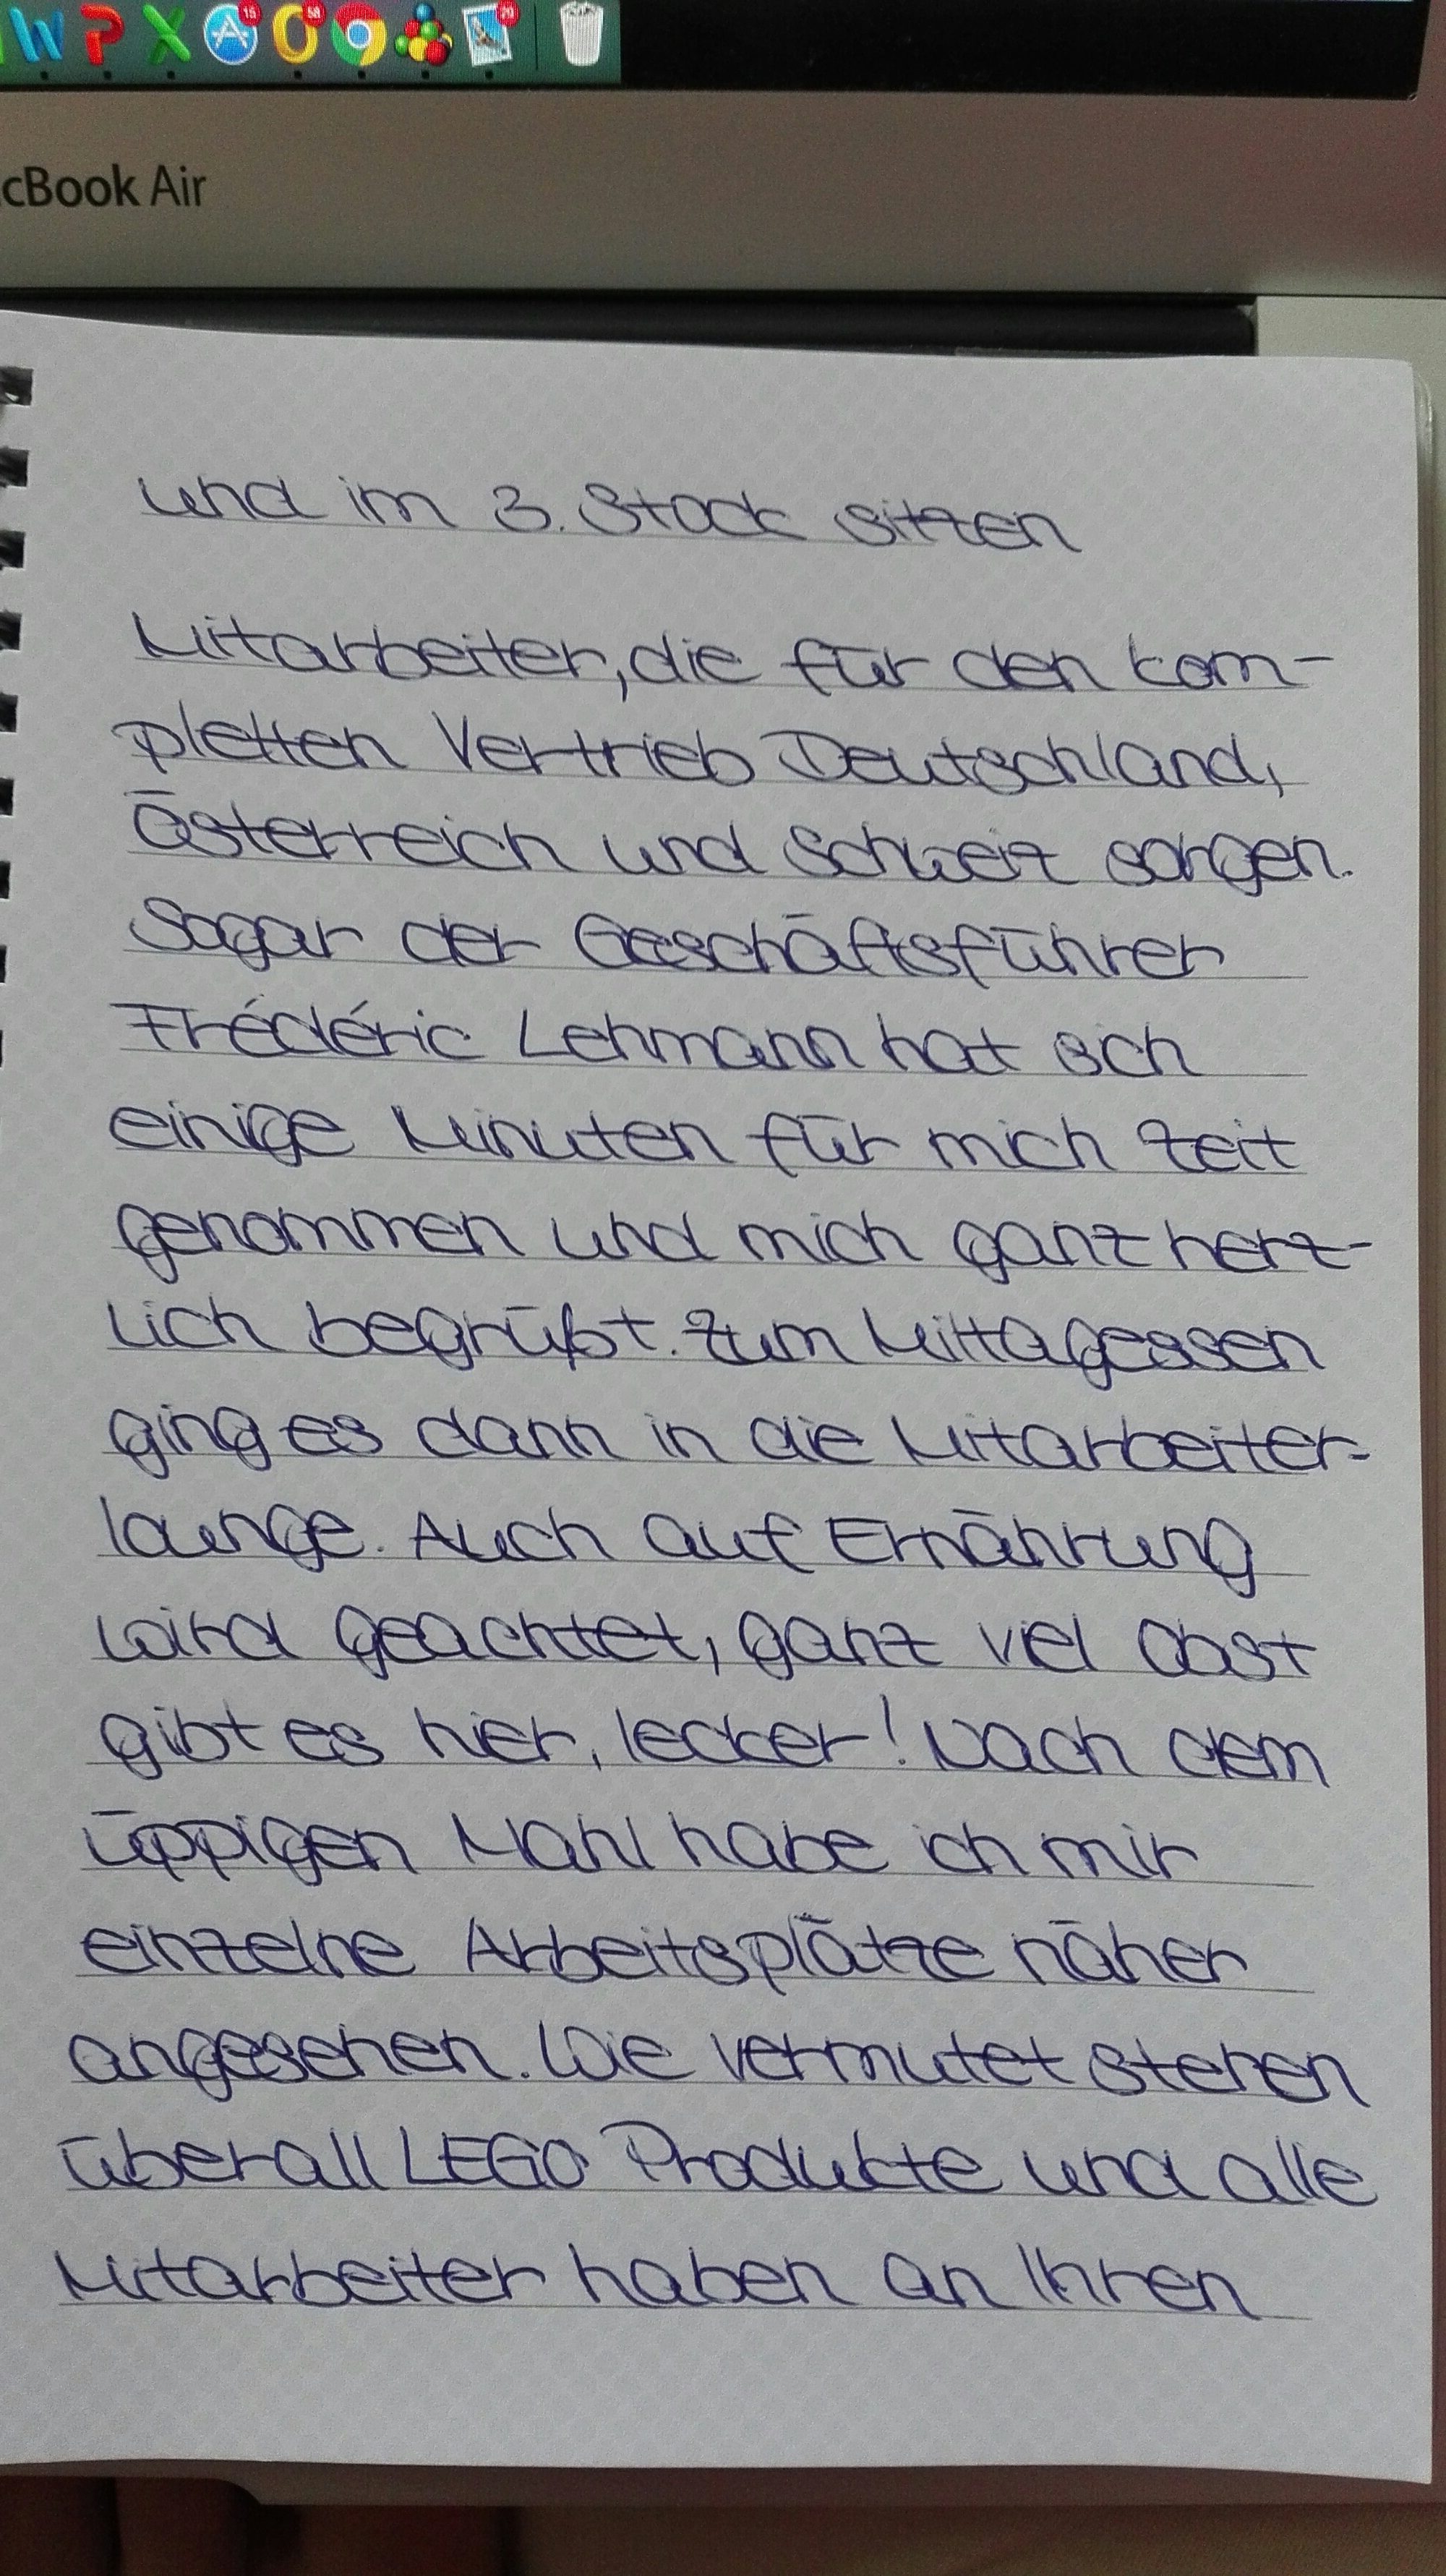 15
58
20
cBook Air
und im 3. Stock sitzen
Mitarbeiter, die für den kom-
pletten Vertrieb Deutschland,
Österreich und Schweiz sorgen.
Sogar der Geschäftsführer
Frédéric Lehmann hat sich
einige Minuten für mich Zeit
genommen und mich ganz herz-
lich begrüßt. Zum Mittagessen
ging es dann in die Mitarbeiter-
lounge. Auch auf Ernährung
wird geachtet, ganz viel Obst
gibt es hier, lecker! Nach dem
üppigen Mahl habe ich mir
einzelne Arbeitsplätze näher
angesehen. Wie vermutet stehen
überall LEGO Produkte und alle
Mitarbeiter haben an Ihren